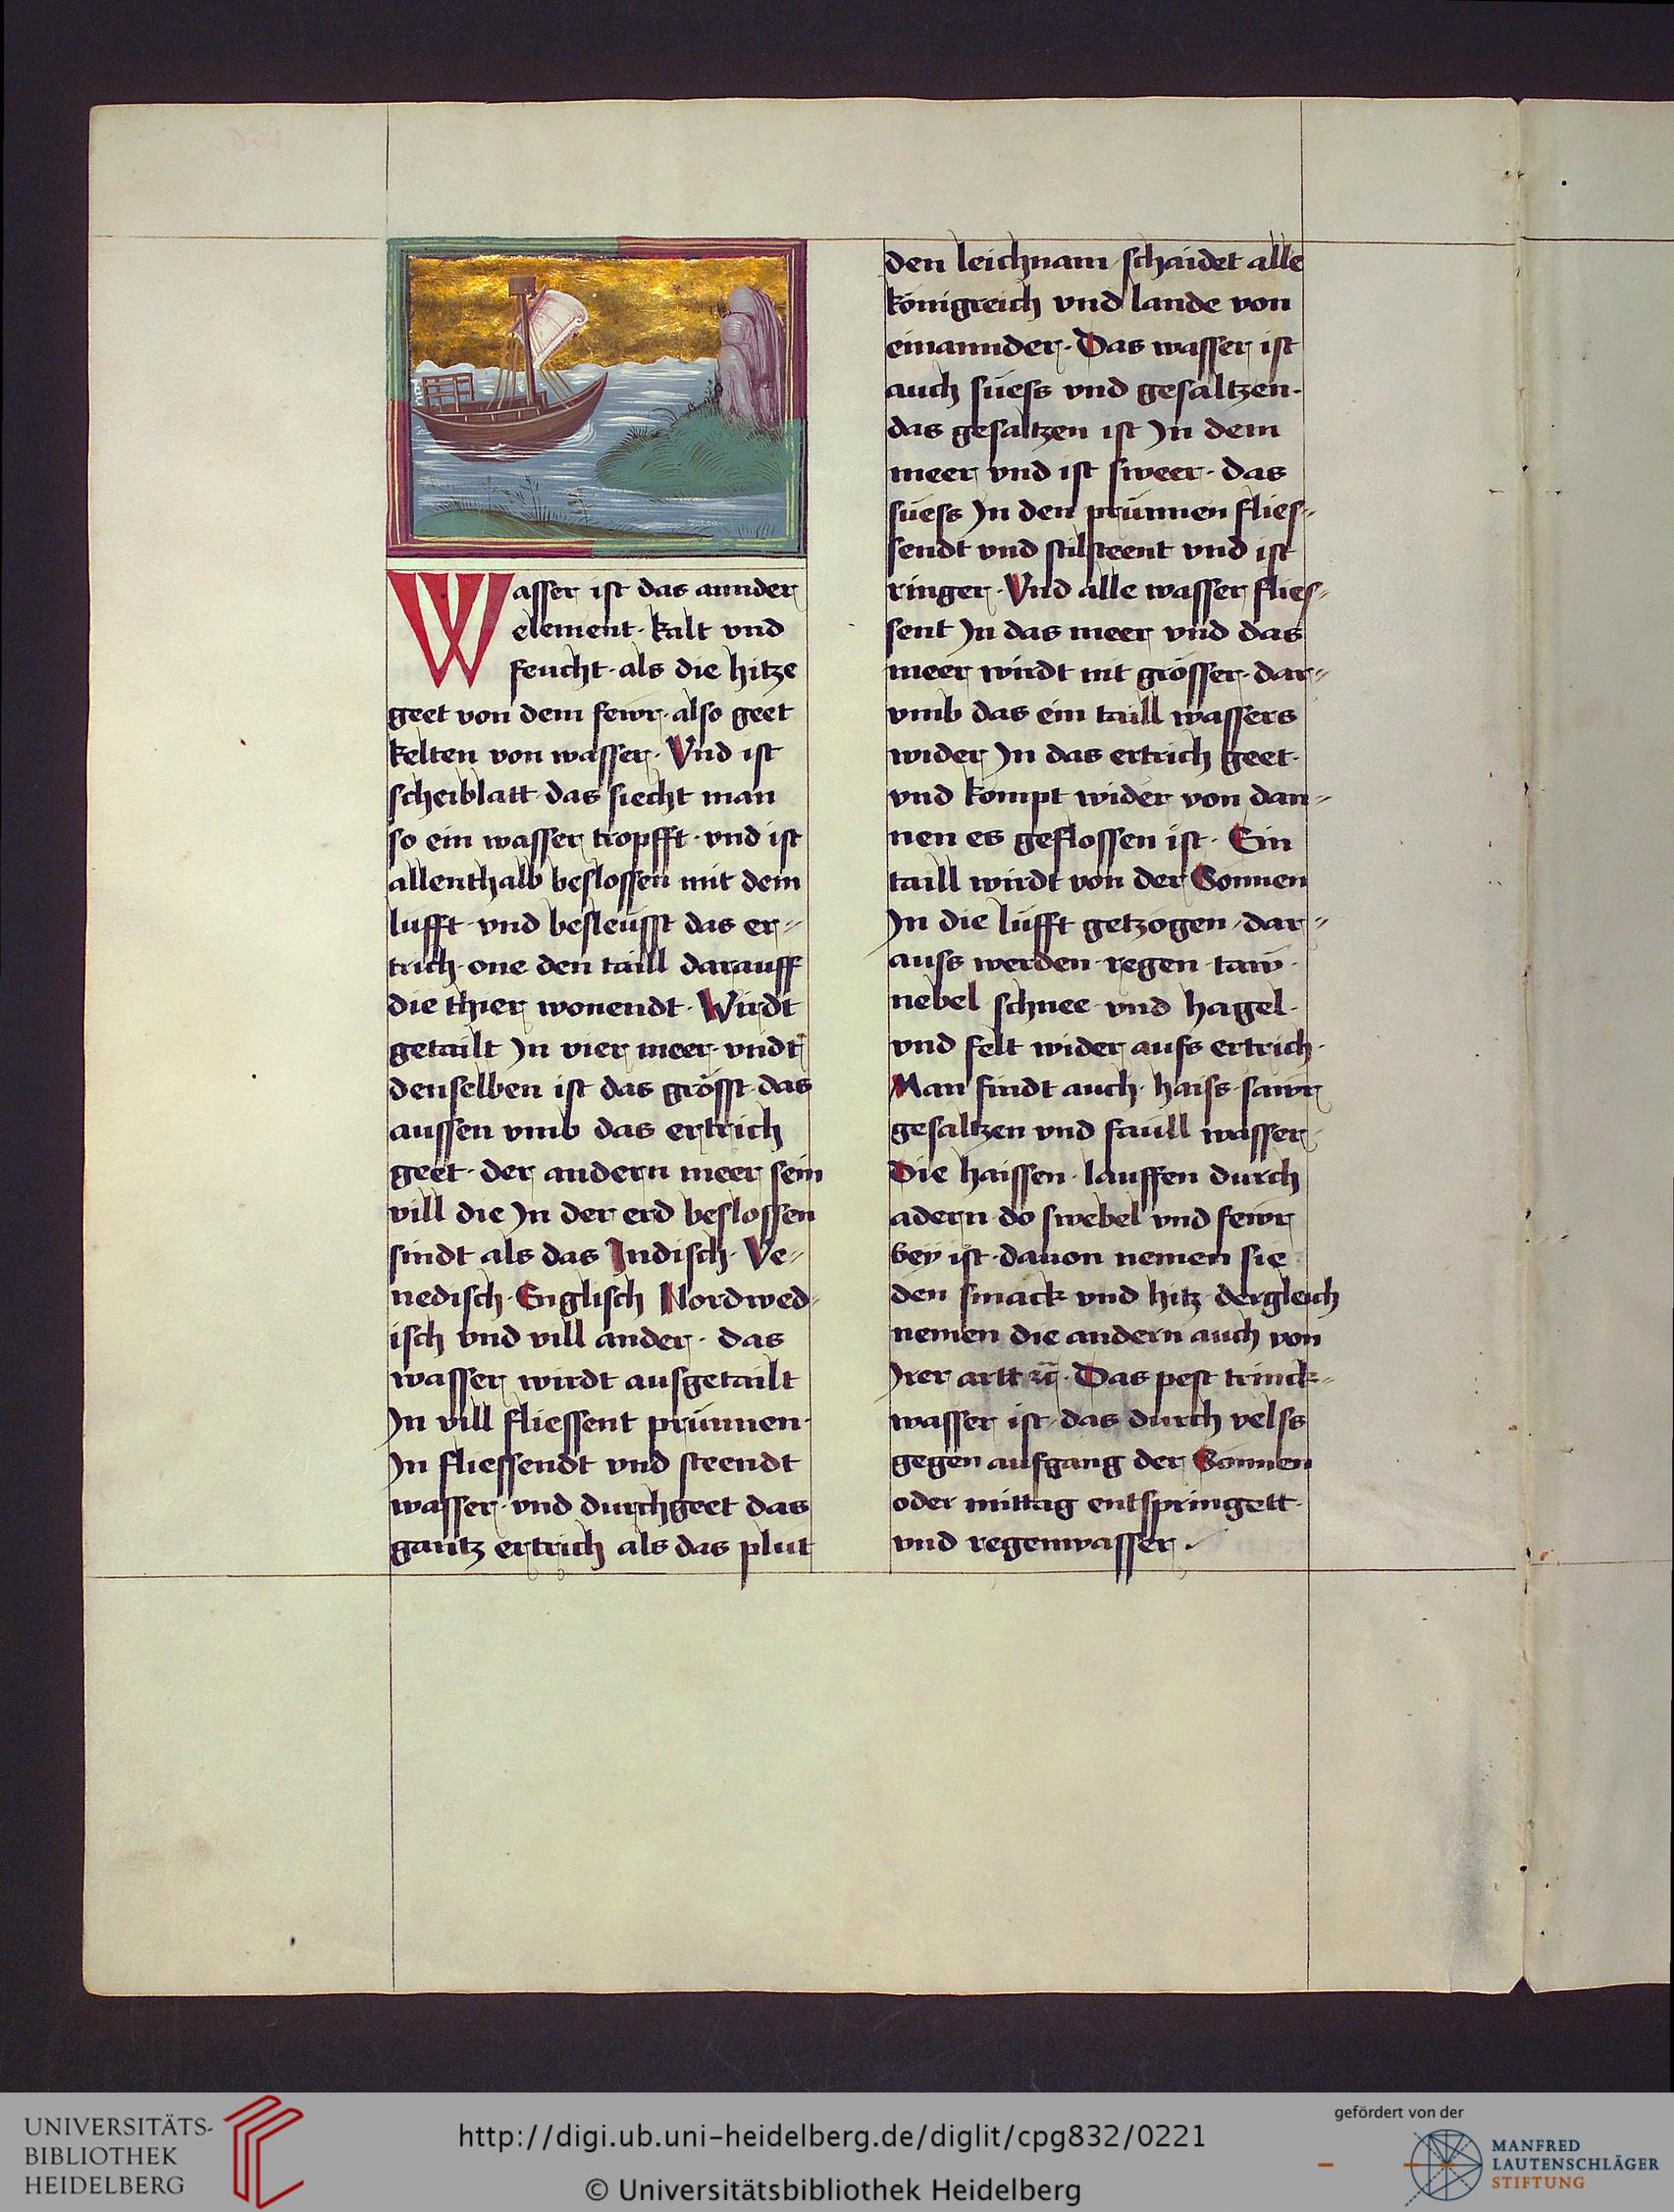 Wasser ist das annder
element · kalt vnd
feucht · als die hitze
geet von dem fewr · also geet
kelten von wasser · Vnd ist
scheiblatt · das siecht man
so ein wasser tropfft · vnd ist
allenthalb beslossen mit dem
lufft · vnd besleüsst das er-
trich · one den taill darauff
die thier wonendt · Wirdt
getailt Jn vier meer · vndt̃
denselben ist das grösst · das
aussen vmb das ertrich
geet · der andern meer sein
vill die Jn der erd beslossen
sindt als das Jndisch · Ve-
nedisch · Englisch Nordwed-
isch vnd vill ander · das
wasser wirdt ausgetailt
Jn vill fliessent prünnen ·
Jn fliessendt vnd steendt
wasser · vnd durchgeet das
gantz ertrich als das plut
den leichnam · schaidet alle
königreich vnd lande von
einannder · Das wasser ist
auch süess vnd gesaltzen ·
das gesaltzen ist Jn dem
meer vnd ist sweer · das
süess Jn den prünnen flies-
sendt vnd stilsteent vnd ist
ringer · Vnd alle wasser flies-
sent Jn das meer vnd das
meer wirdt nit grösser · dar-
vmb das ein taill wassers
wider Jn das ertrich geet ·
vnd kompt wider von dan-
nen es geflossen ist · Ein
taill wirdt von der Sonnen
Jn die lüfft getzogen · dar-
auss werden · regen · taw ·
nebel schnee · vnd hagel ·
vnd felt wider aufs ertrich ·
Man findt auch · haiss · sawr
gesaltzen vnd faull wasser ·
Die haissen · lauffen durch
adern do swebel vnd fewr
bey ist · dauon nemen sie
den smack vnd hitz · dergleich
nemen die andern auch von
Jrer artt rc̃ · Das pest trinck-
wasser ist · das durch velss
gegen aufgang der Sonnen
oder mittag entspringett ·
vnd regenwasser ·
UNIVERSITÄTS-
BIBLIOTHEK
HEIDELBERG
http://digi.ub.uni-heidelberg.de/diglit/cpg832/0221
© Universitätsbibliothek Heidelberg
gefördert von der
MANFRED
LAUTENSCHLÄGER
STIFTUNG